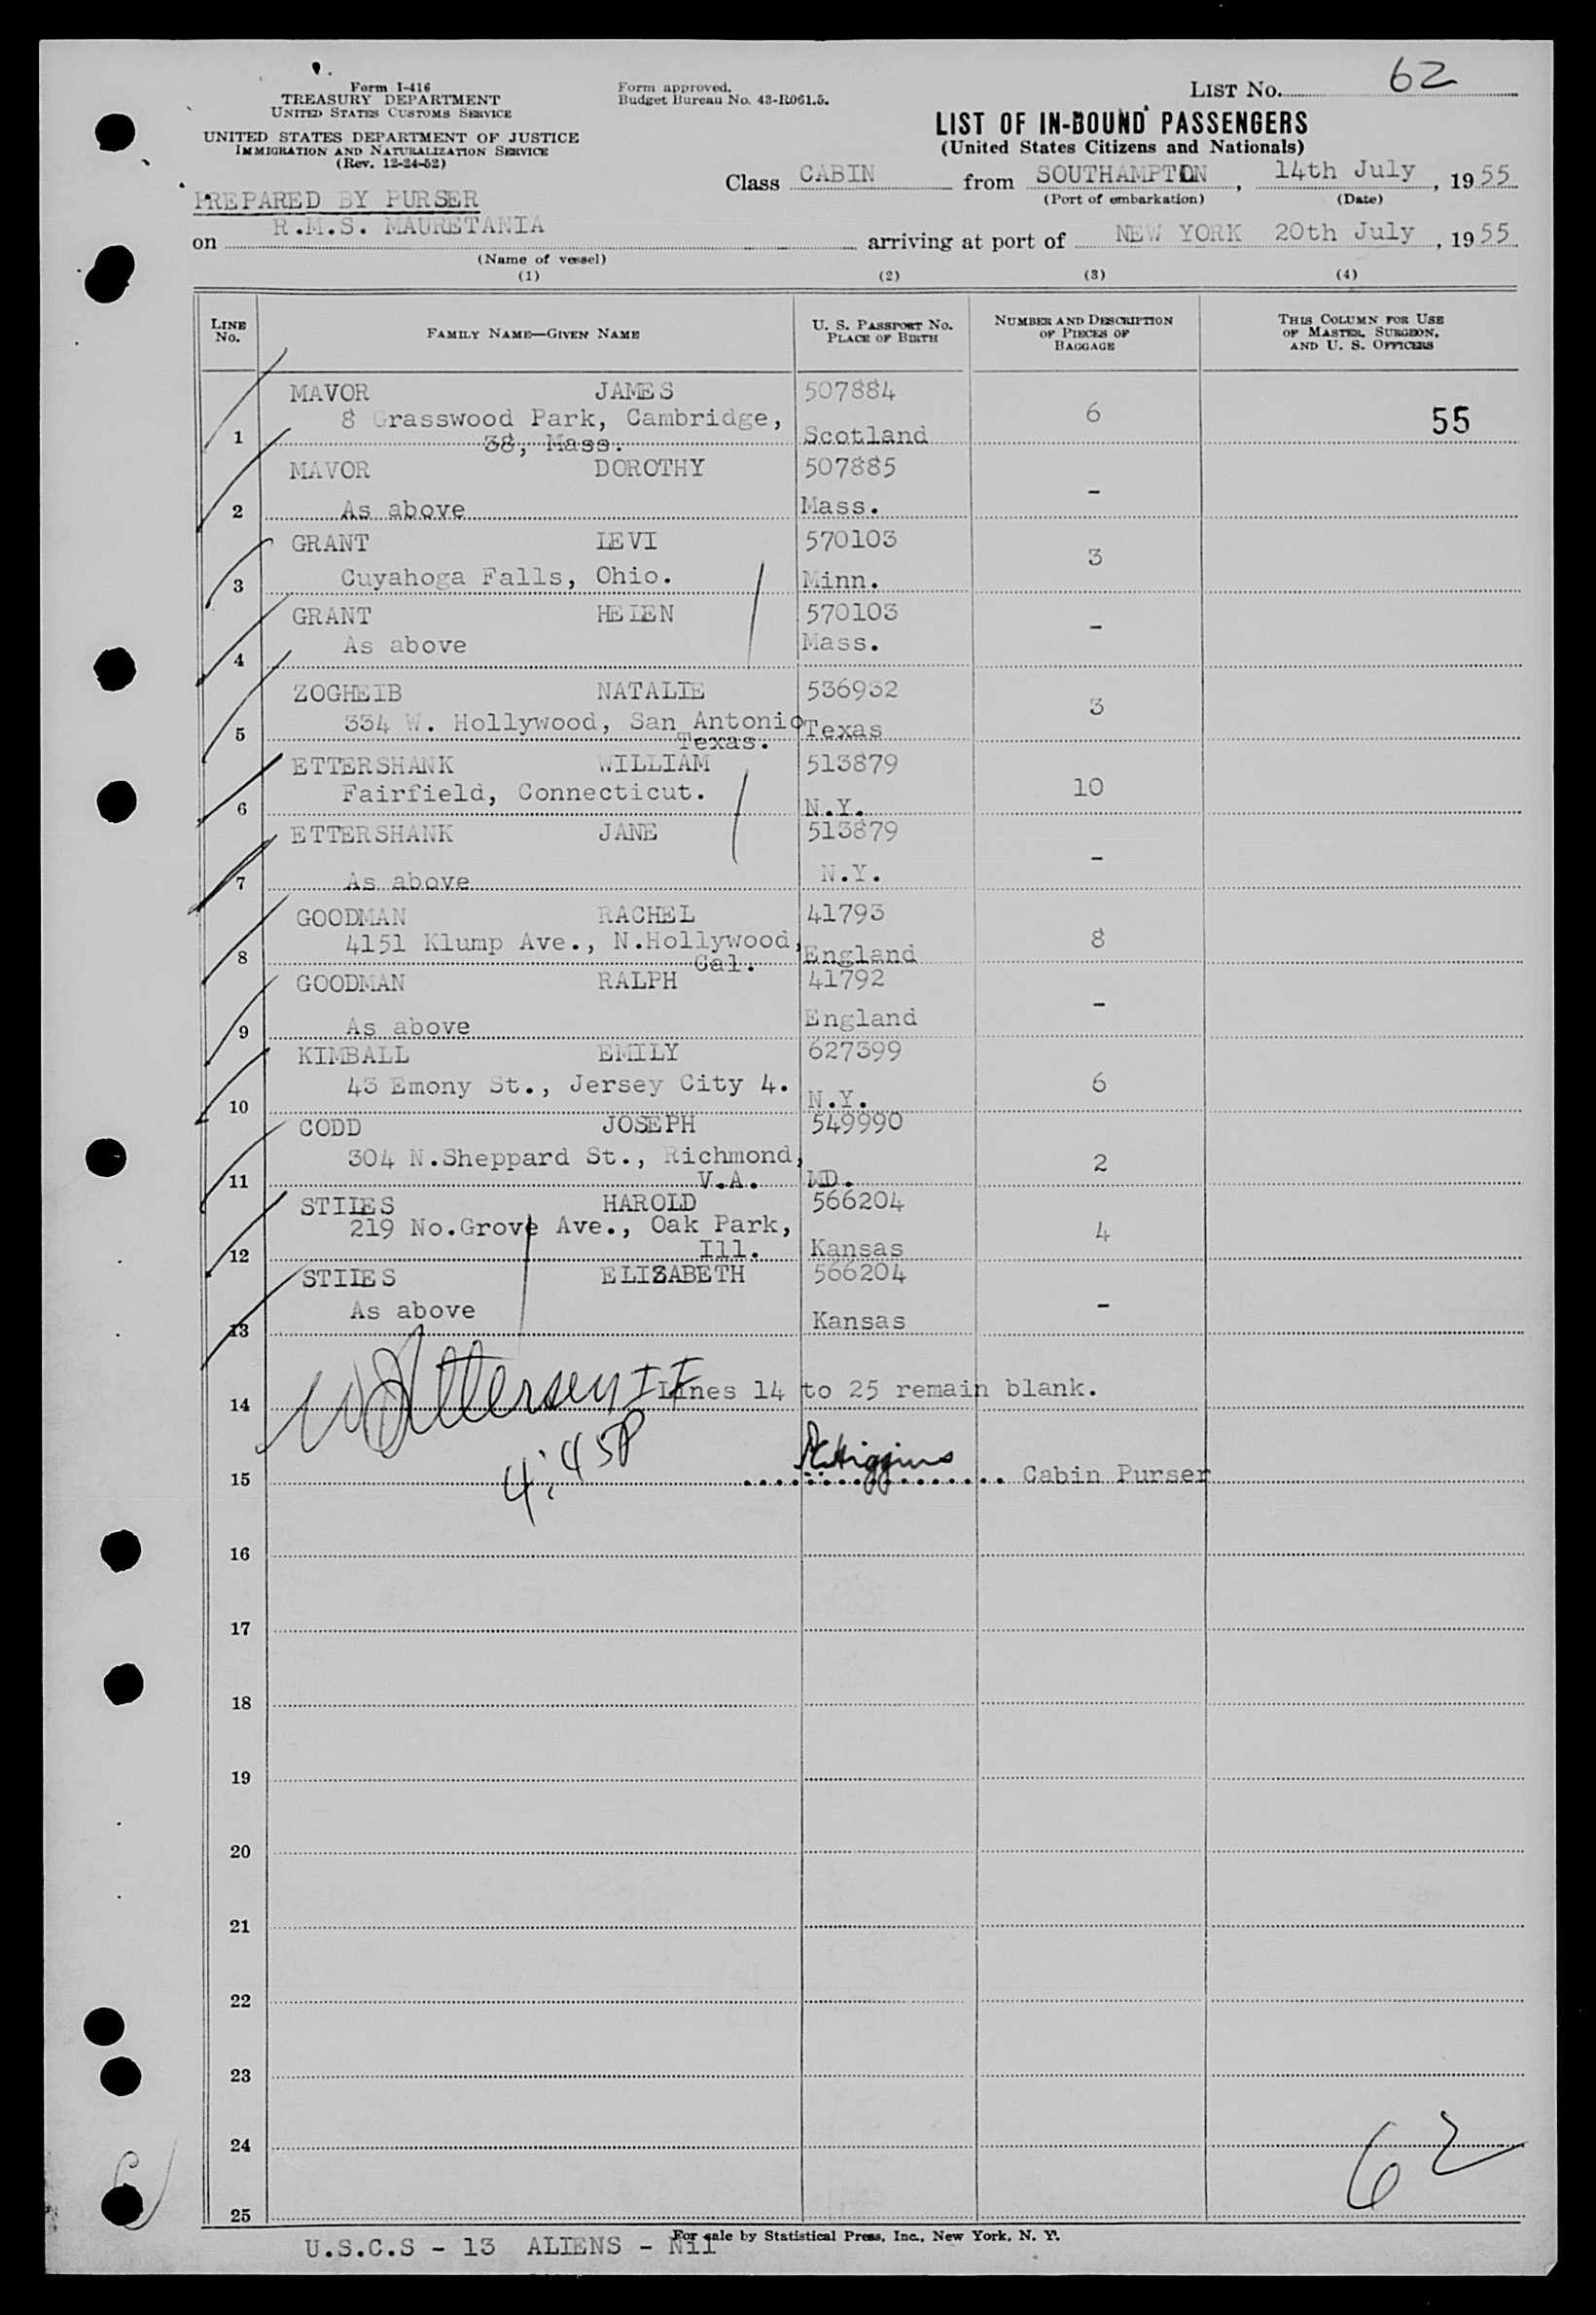 Form I-416
TREASURY DEPARTMENT
UNITED STATES CUSTOMS SERVICE
UNITED STATES DEPARTMENT OF JUSTICE
IMMIGRATION AND NATURALIZATION SERVICE
(Rev. 12-24-52)
Form approved.
Budget Bureau No. 43-R061.5.
LIST No. 62
LIST OF IN-BOUND PASSENGERS
(United States Citizens and Nationals)
PREPARED BY PURSER
Class CABIN from SOUTHAMPTON, 14th July, 1955
(Port of embarkation) (Date)
on R.M.S. MAURETANIA arriving at port of NEW YORK 20th July, 1955
(Name of vessel)
(1) (2) (3) (4)
LINE No. FAMILY NAME—GIVEN NAME U. S. PASSPORT No. PLACE OF BIRTH NUMBER AND DESCRIPTION OF PIECES OF BAGGAGE THIS COLUMN FOR USE OF MASTER, SURGEON, AND U. S. OFFICERS
MAVOR JAMES 507884
8 Grasswood Park, Cambridge, 6 55
1 38, Mass. Scotland
MAVOR DOROTHY 507885
2 As above Mass. -
GRANT LEVI 570103
3 Cuyahoga Falls, Ohio. Minn. 3
GRANT HELEN 570103
4 As above Mass. -
ZOGHEIB NATALIE 536932
334 W. Hollywood, San Antonio Texas 3
5 Texas.
ETTERSHANK WILLIAM 513879
Fairfield, Connecticut. 10
6 N.Y.
ETTERSHANK JANE 513879
7 As above N.Y. -
GOODMAN RACHEL 41793
4151 Klump Ave., N.Hollywood, England 8
8 Cal.
GOODMAN RALPH 41792
9 As above England -
KIMBALL EMILY 627399
43 Emony St., Jersey City 4. 6
10 N.Y.
CODD JOSEPH 549990
304 N.Sheppard St., Richmond, 2
11 V.A. MD.
STILES HAROLD 566204
219 No.Grove Ave., Oak Park, 4
12 Ill. Kansas
STILES ELISABETH 566204
13 As above Kansas -
14 Lines 14 to 25 remain blank.
4:45P
15 Higgins Cabin Purser
16
17
18
19
20
21
22
23
24
25
62
For sale by Statistical Press, Inc., New York, N. Y.
U.S.C.S - 13 ALIENS - Nil